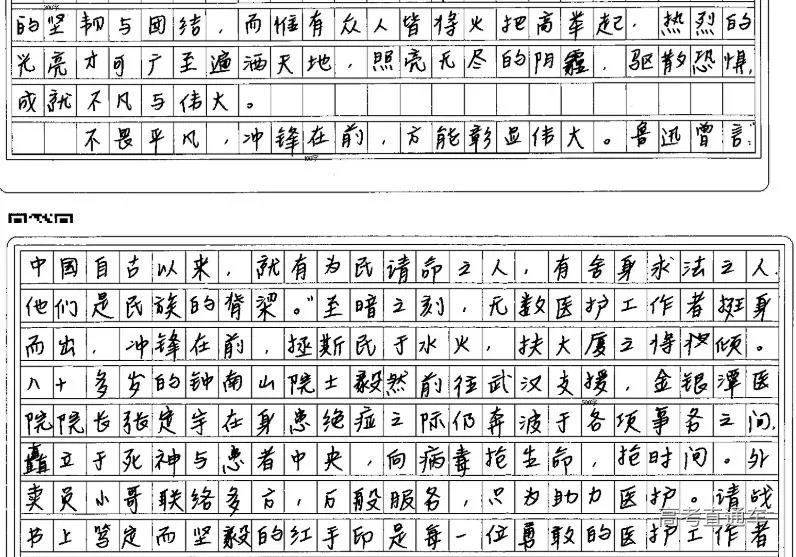 的坚韧与团结，而惟有众人皆将火把高举起，热烈的
光亮才可广至遍洒天地，照亮无尽的阴霾，驱散恐惧，
成就不凡与伟大。
不畏平凡，冲锋在前，方能彰显伟大。鲁迅曾言：“
中国自古以来，就有为民请命之人，有舍身求法之人，
他们是民族的脊梁。”至暗之刻，无数医护工作者挺身
而出，冲锋在前，拯斯民于水火，扶大厦之将倾。
八十多岁的钟南山院士毅然前往武汉支援，金银潭医
院院长张定宇在身患绝症之际仍奔波于各项事务之间，
矗立于死神与患者中央，向病毒抢生命，抢时间。外
卖员小哥联络多方，万般服务，只为助力医护。请战
书上笃定而坚毅的红手印是每一位勇敢的医护工作者
高考直通车